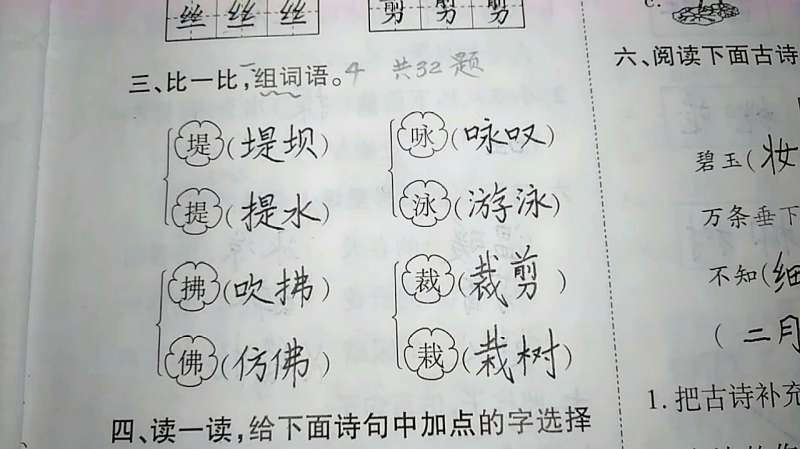 丝 丝 丝
剪 剪 剪
c.
三、比一比,组词语。4 共32题
堤(堤坝) 咏(咏叹)
提(提水) 泳(游泳)
拂(吹拂) 裁(裁剪)
佛(仿佛) 栽(栽树)
四、读一读,给下面诗句中加点的字选择
六、阅读下面古诗
碧玉(妆
万条垂下
不知(细
(二月
1.把古诗补充